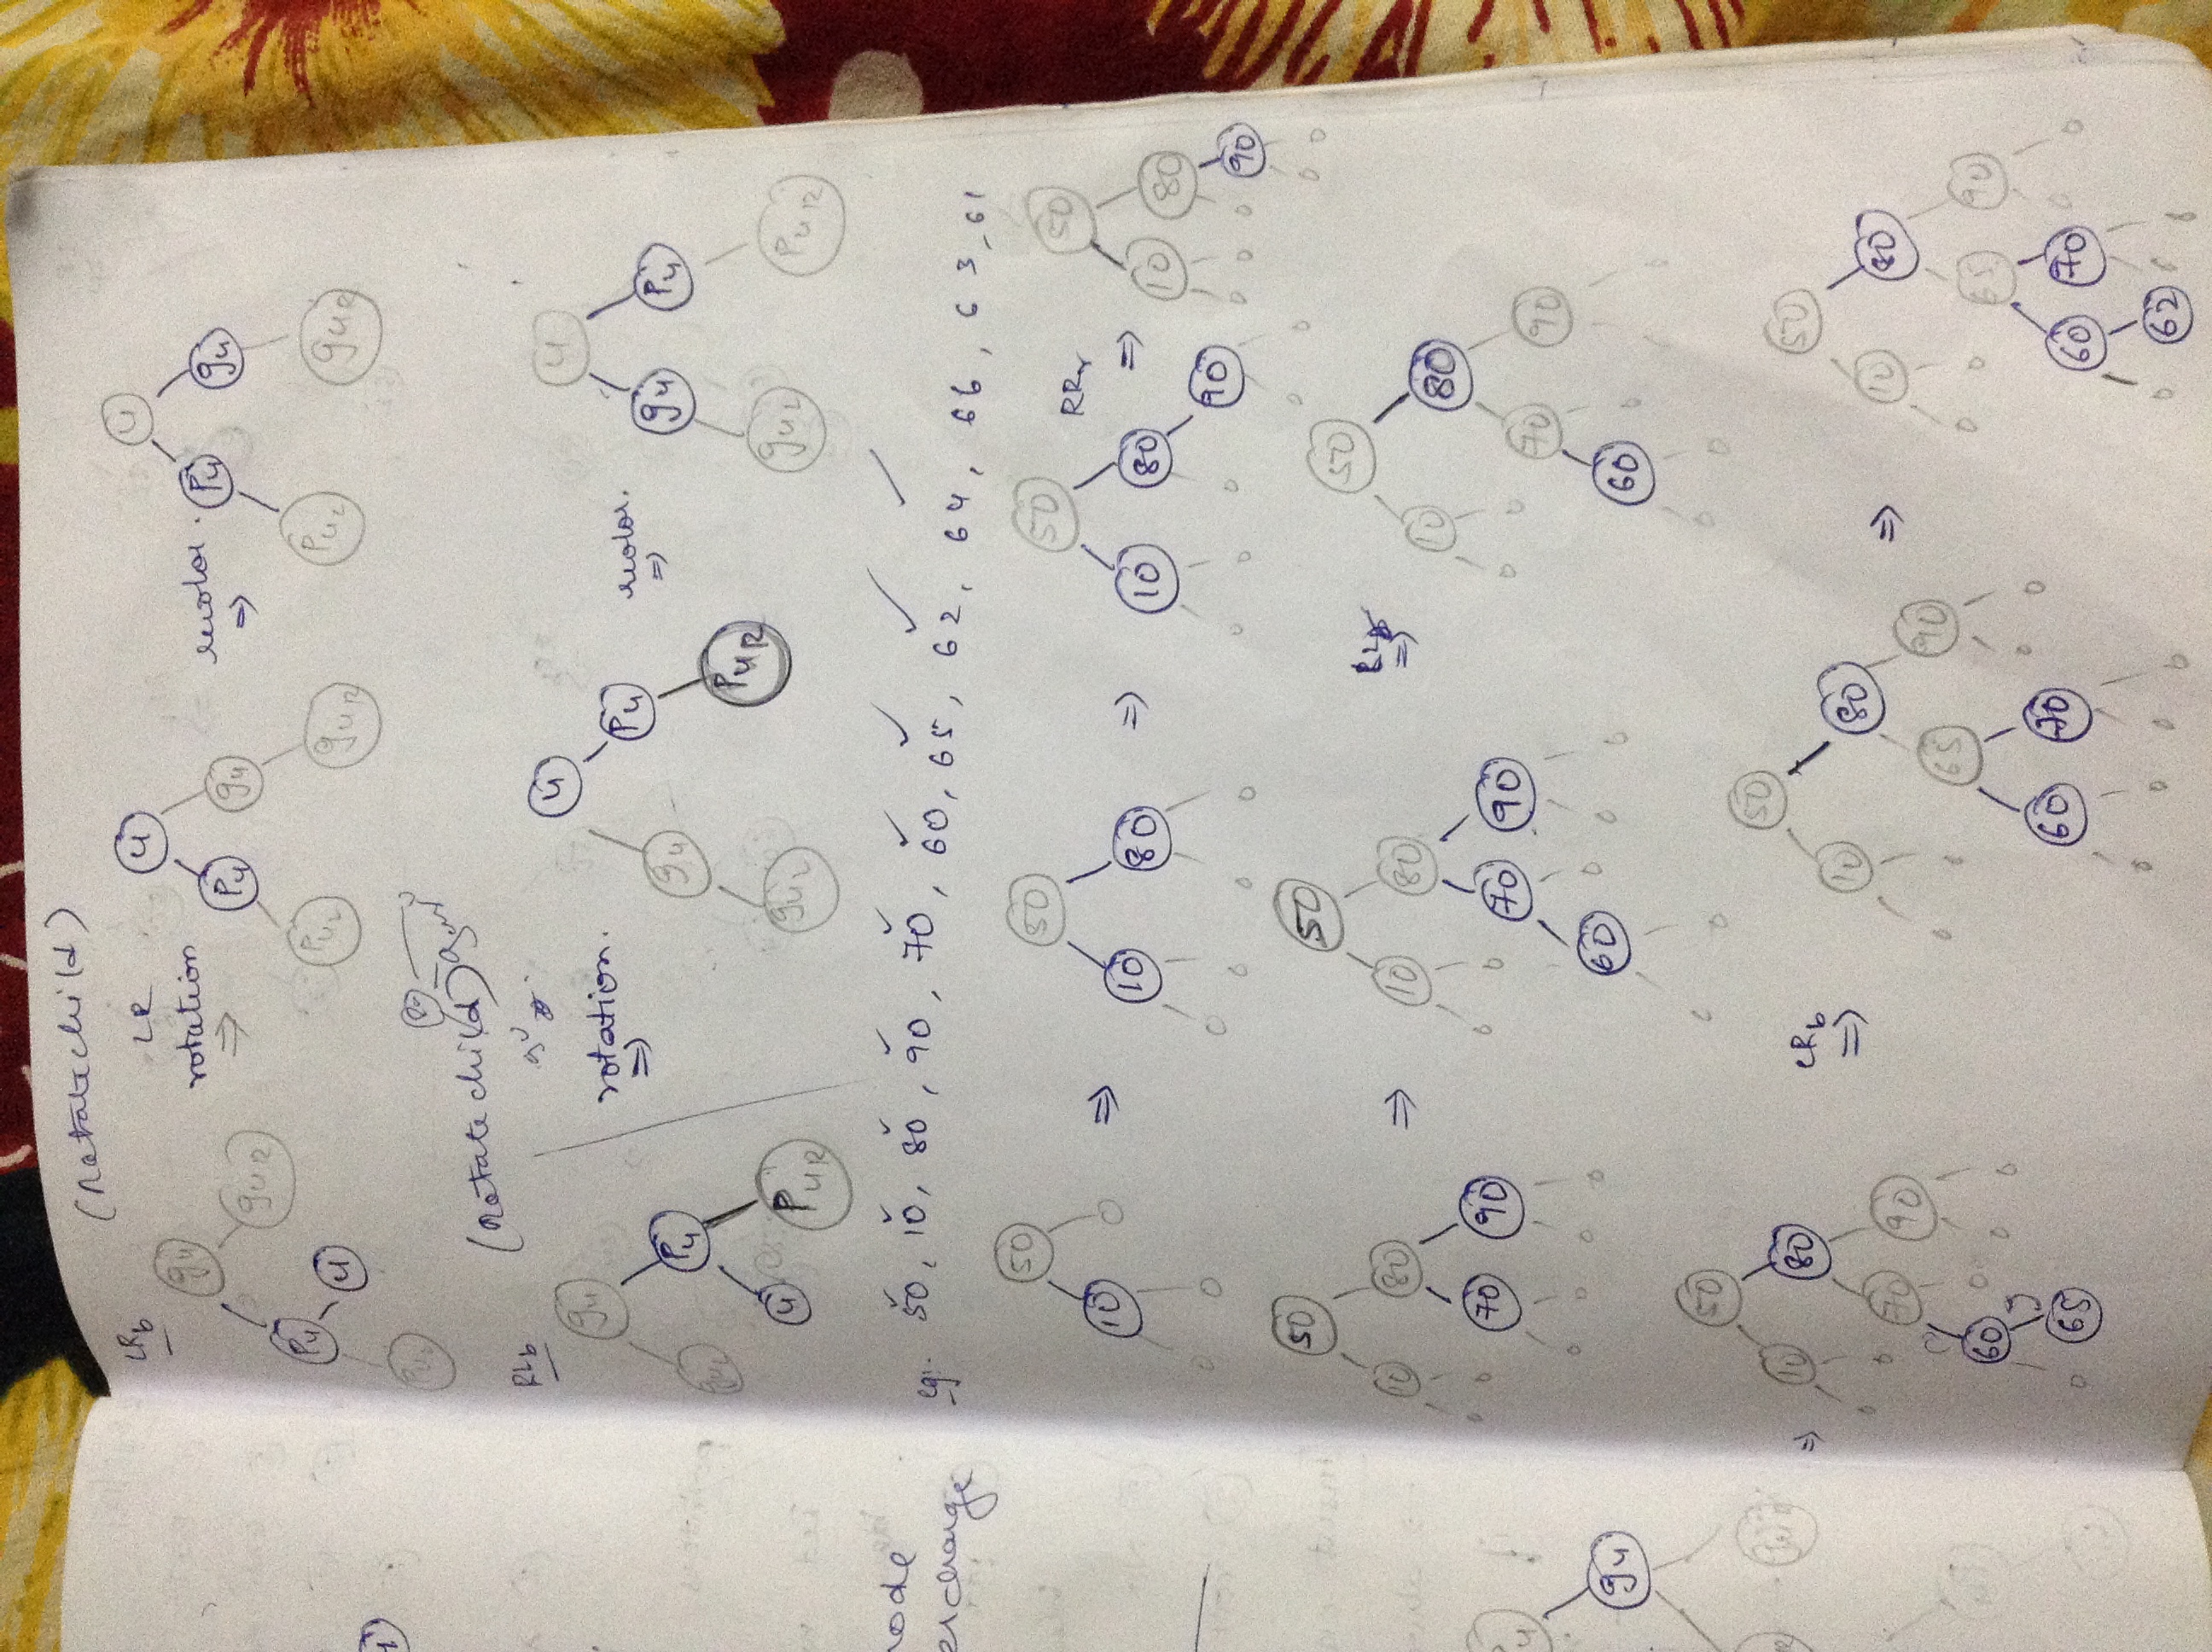 (Rotate child)
LRb
gu
guR
Pu
u
PuL
LR
rotation
⇒
u
Pu gu
PuL guR
recolor.
⇒
u
Pu gu
PuL guR
(Rotate child)
RLb
gu
guL
Pu
u
PuR
rotation.
⇒
u
Pu
gu
PuR
guL
recolor.
⇒
u
gu Pu
guL PuR
eg:- 50, 10, 80, 90, 70, 60, 65, 62, 64, 66, 63, 61
50
10
⇒
50
10 80
⇒
50
10 80
90
RRr
⇒
50
10 80
90
50
10 80
70 90
⇒
50
10 80
70 90
60
⇒
50
10 80
70 90
60
⇒
50
10 80
70 90
60
65
LRb
⇒
50
10 80
65 90
60 70
⇒
50
10 80
65 90
60 70
62
node
erchange
gu